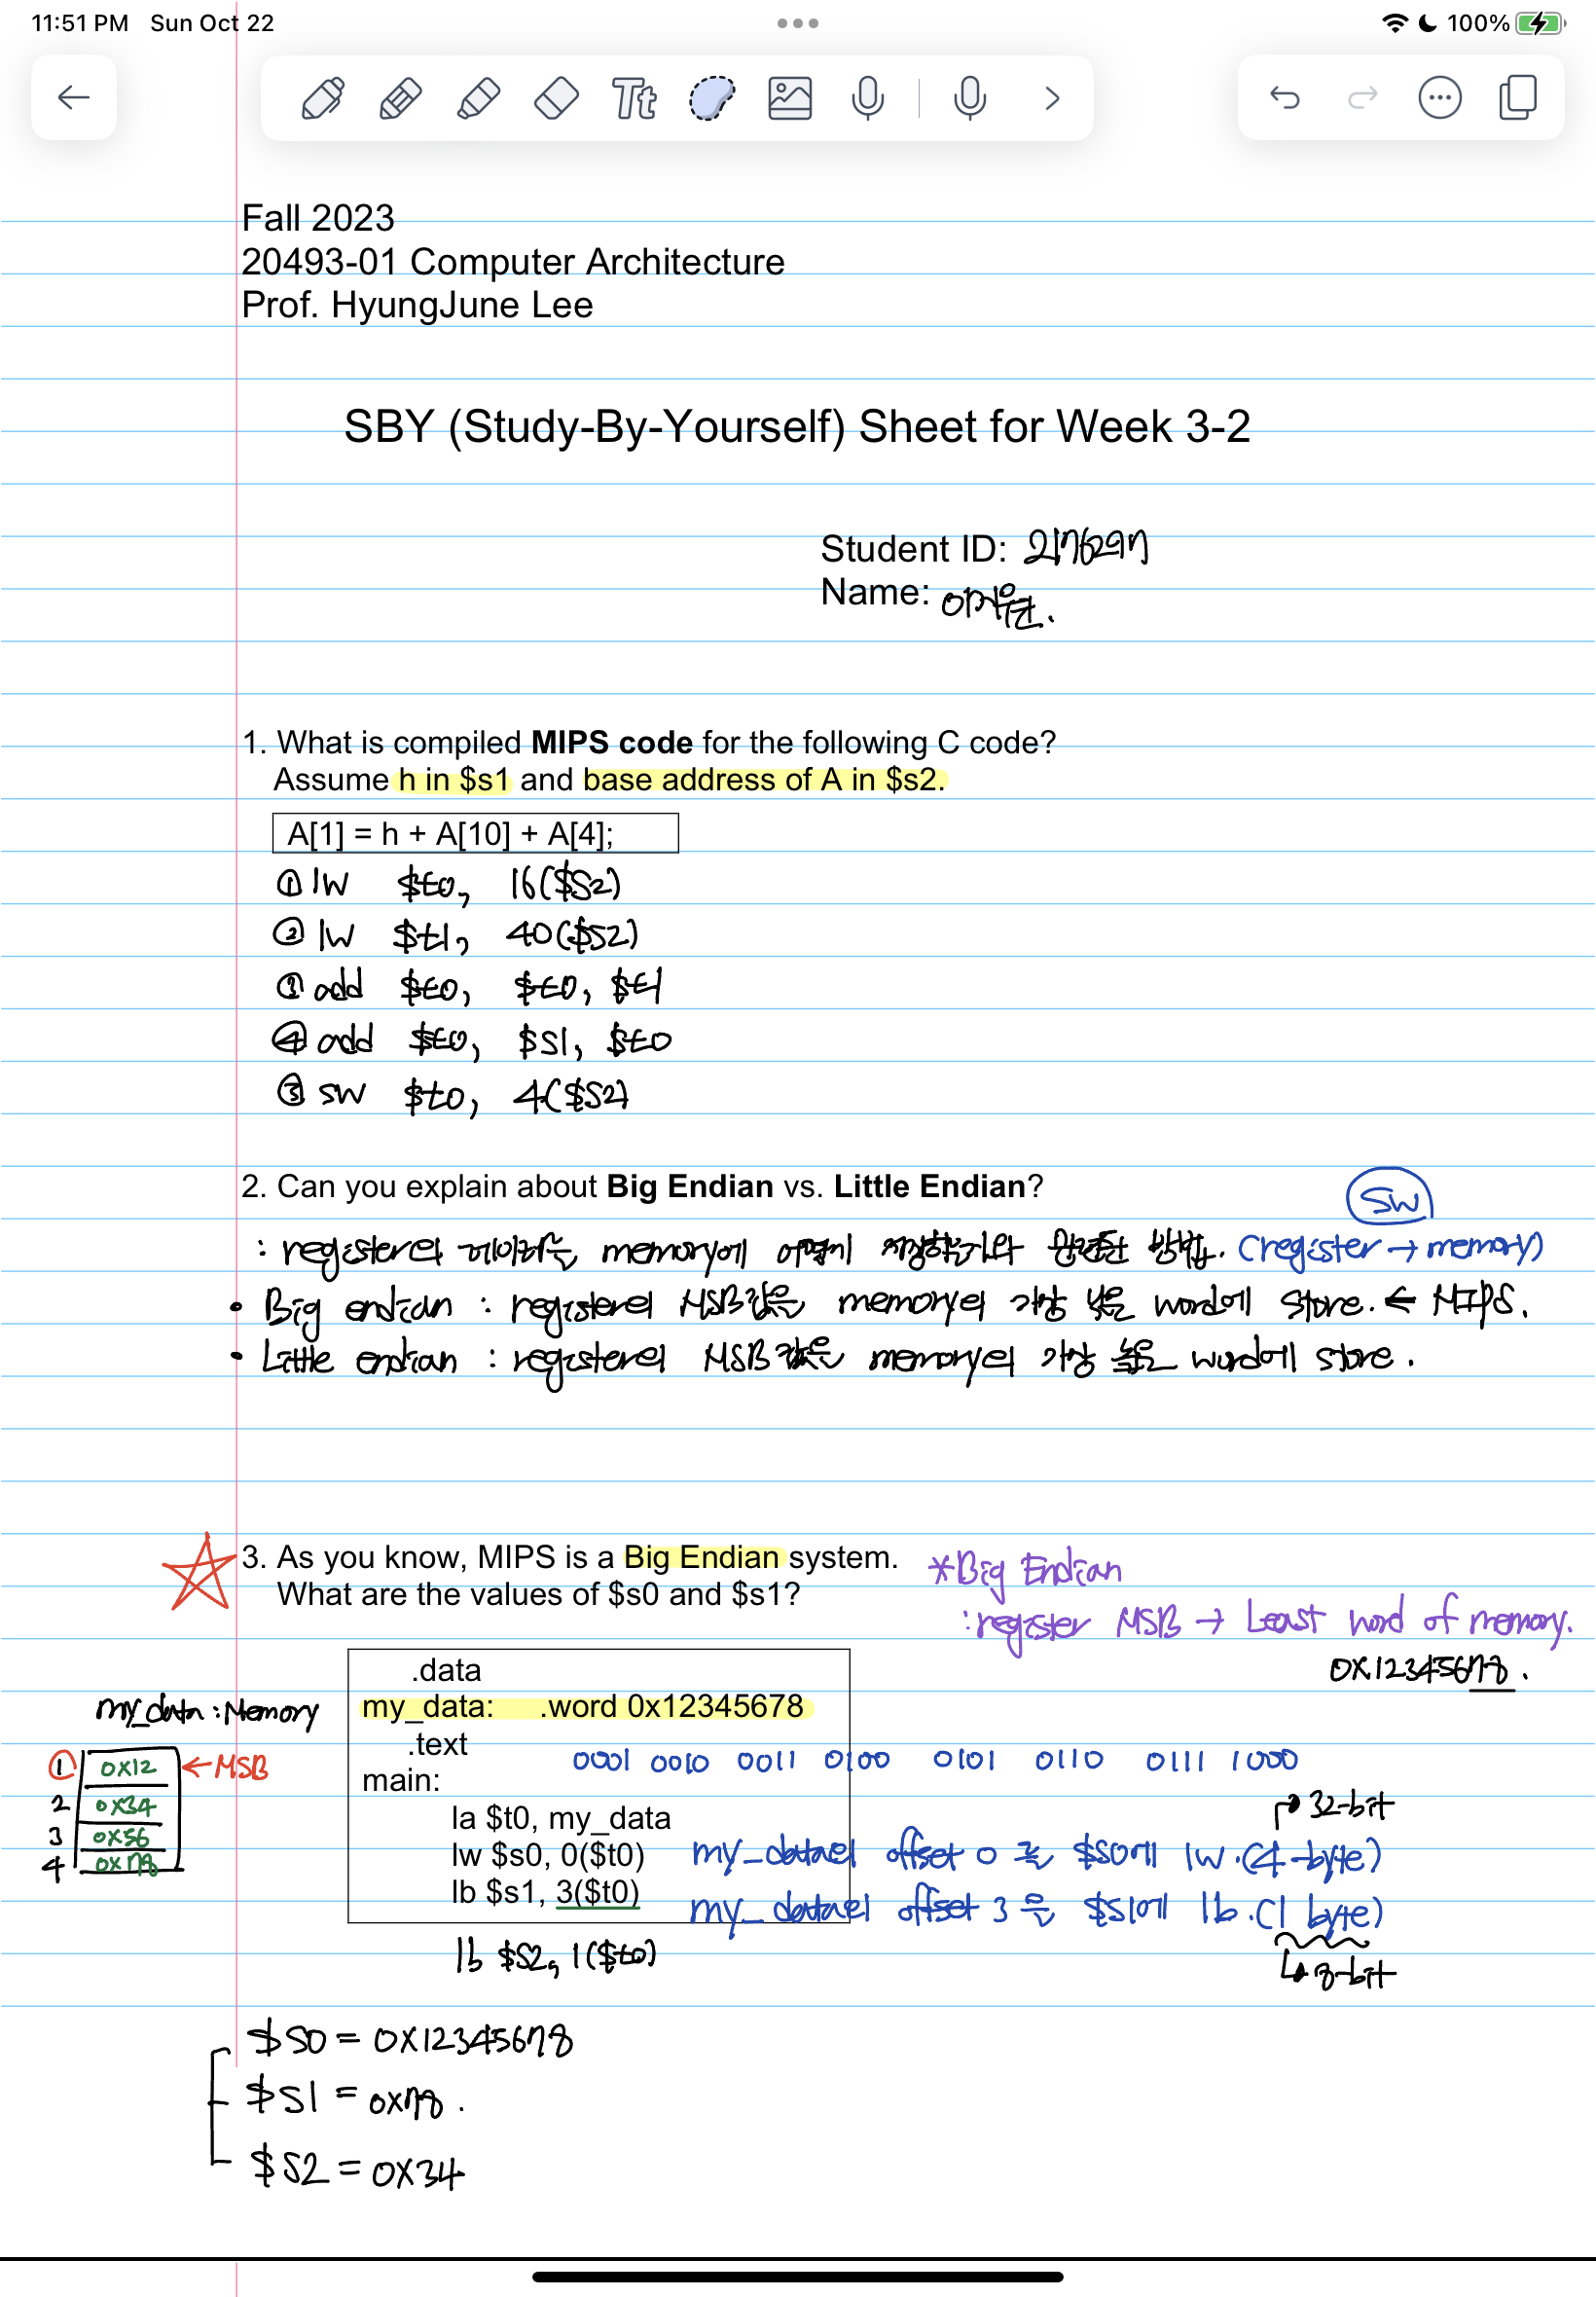 11:51 PM Sun Oct 22
100%
Tt
Fall 2023
20493-01 Computer Architecture
Prof. HyungJune Lee
SBY (Study-By-Yourself) Sheet for Week 3-2
Student ID: 2176297
Name:
1. What is compiled MIPS code for the following C code?
Assume h in $s1 and base address of A in $s2.
A[1] = h + A[10] + A[4];
① lw $t0, 16($s2)
② lw $t1, 40($s2)
③ add $t0, $t0, $t1
④ add $t0, $s1, $t0
⑤ sw $t0, 4($s2)
2. Can you explain about Big Endian vs. Little Endian?
SW
: register의 데이터를 memory에 어떻게 저장하느냐 방법. (register → memory)
• Big endian : register의 MSB값을 memory의 가장 낮은 word에 store. ← MIPS.
• Little endian : register의 MSB값을 memory의 가장 높은 word에 store.
3. As you know, MIPS is a Big Endian system.
What are the values of $s0 and $s1?
*Big Endian
: register MSB → Least word of memory.
0x12345678.
.data
my_data: .word 0x12345678
.text
main:
la $t0, my_data
lw $s0, 0($t0)
lb $s1, 3($t0)
my_data : Memory
① 0x12 ← MSB
2 0x34
3 0x56
4 0x78
0001 0010 0011 0100 0101 0110 0111 1000
32-bit
my_data의 offset 0 를 $s0에 lw. (4-byte)
my_data의 offset 3 을 $s1에 lb. (1 byte)
8-bit
lb $s2, 1($t0)
$s0 = 0x12345678
$s1 = 0x78.
$s2 = 0x34